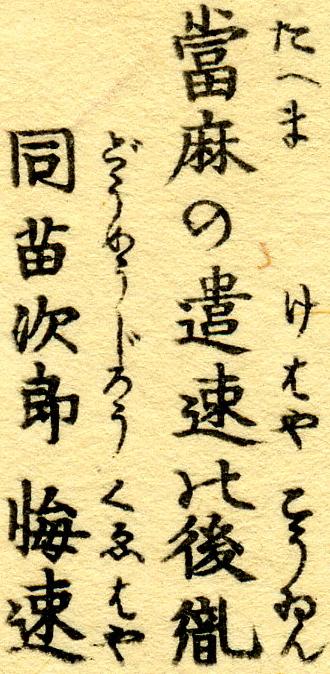 たへま けはや こうゐん
當麻の遣速此後胤
どうめうじろう くゑはや
同苗次郎 悔速